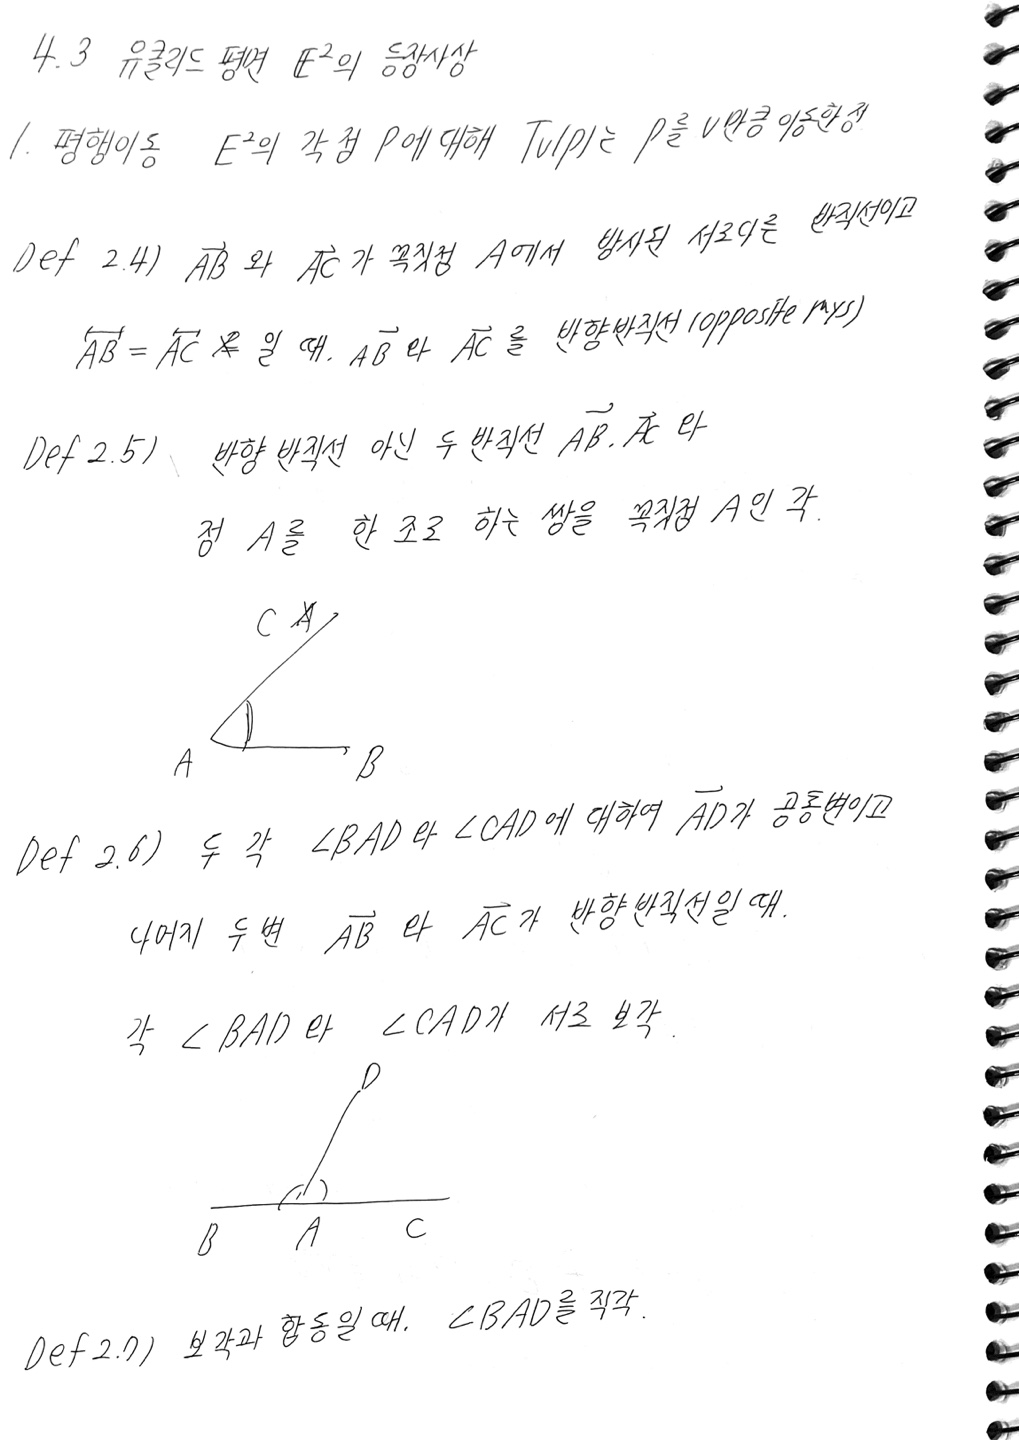 4.3 유클리드 평면 E²의 등장사상
1. 평행이동 E²의 각 점 P에 대해 Tv(p)는 p를 v만큼 이동한 점
Def 2.4) AB와 AC가 꼭직점 A에서 방사된 서로다른 반직선이고
AB = AC 일 때. AB와 AC를 반향반직선(opposite rays)
Def 2.5) 반향 반직선 아닌 두 반직선 AB, AC와
점 A를 한 조로 하는 쌍을 꼭직점 A인 각.
C
A
B
Def 2.6) 두 각 ∠BAD와 ∠CAD에 대하여 AD가 공통변이고
나머지 두변 AB와 AC가 반향반직선일 때.
각 ∠BAD와 ∠CAD가 서로 보각.
D
B A C
Def 2.7) 보각과 합동일 때. ∠BAD를 직각.